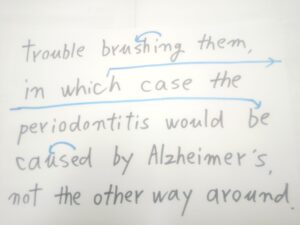 trouble brushing them,
in which case the
periodontitis would be
caused by Alzheimer's,
not the other way around.